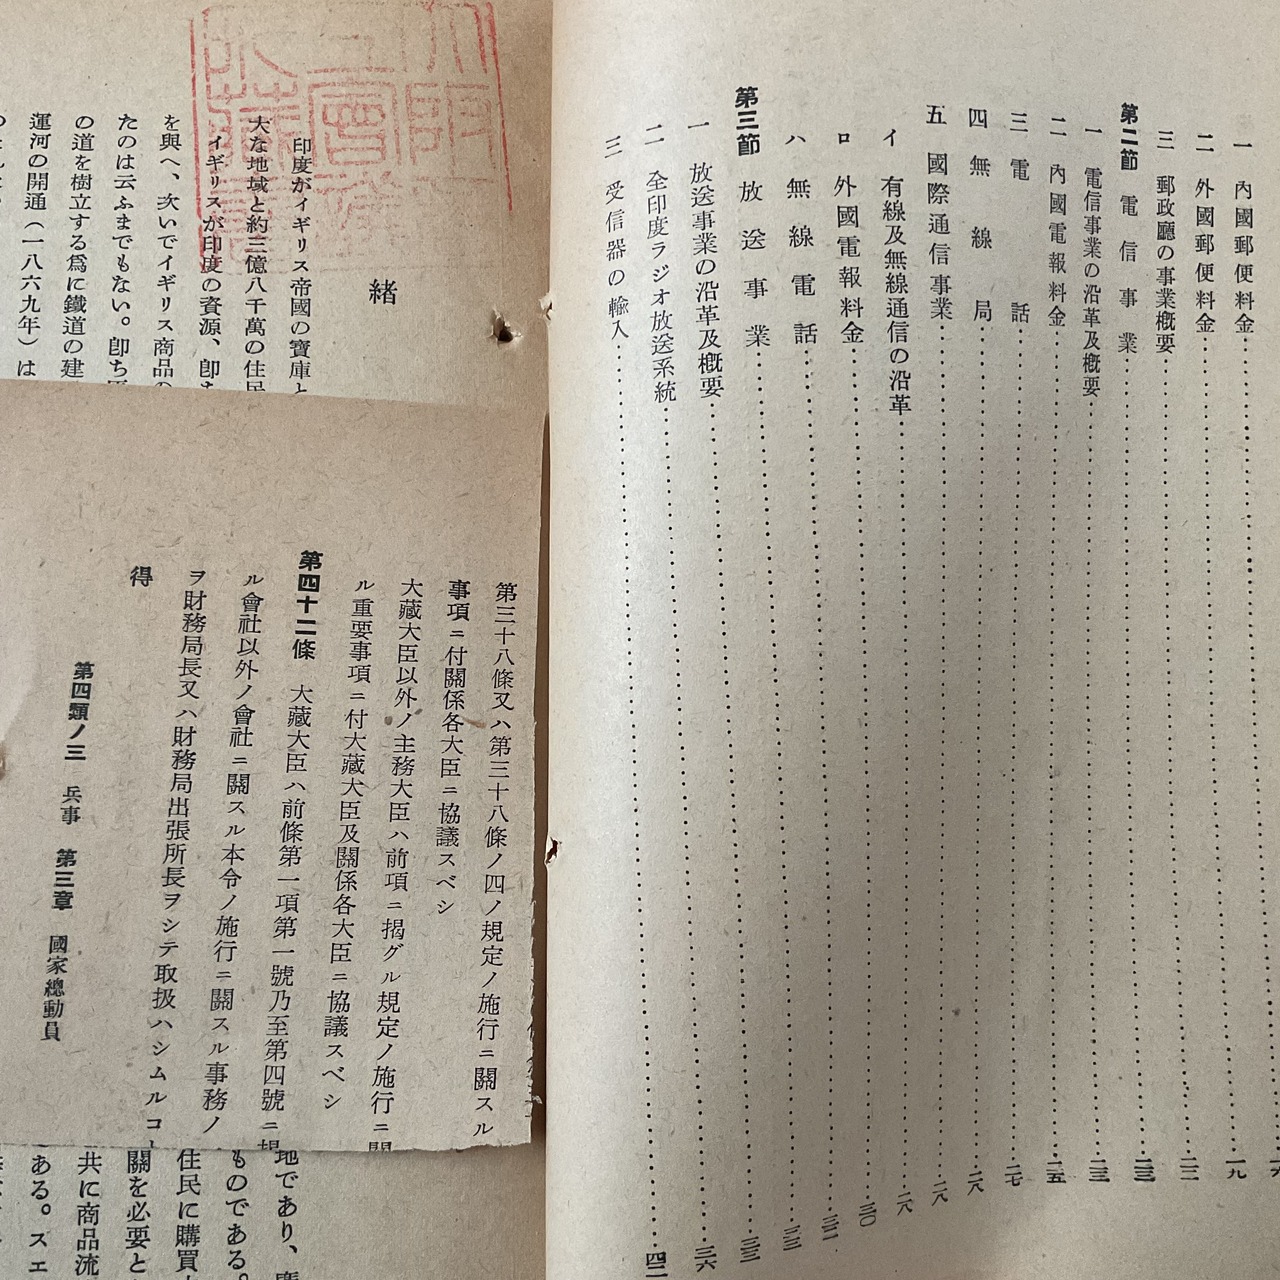 一 內國郵便料金
二 外國郵便料金
三 郵政廳の事業槪要
第二節 電信事業
一 電信事業の沿革及槪要
二 內國電報料金
三 電話
四 無線局
五 國際通信事業
イ 有線及無線通信の沿革
ロ 外國電報料金
ハ 無線電話
第三節 放送事業
一 放送事業の沿革及槪要
二 全印度ラジオ放送系統
三 受信器の輸入
一九
二二
二三
二三
二五
二七
二八
二八
二八
三〇
三二
三三
三三
三六
四二
緖
印度がイギリス帝國の寶庫と
大な地域と約三億八千萬の住民
イギリスが印度の資源、卽ち
を與へ、次いでイギリス商品の
たのは云ふまでもない。卽ち
の道を樹立する爲に鐵道の建
運河の開通（一八六九年）は
第三十八條又ハ第三十八條ノ四ノ規定ノ施行ニ關スル
事項ニ付關係各大臣ニ協議スベシ
大藏大臣以外ノ主務大臣ハ前項ニ揭グル規定ノ施行ニ關
ル重要事項ニ付大藏大臣及關係各大臣ニ協議スベシ
第四十二條 大藏大臣ハ前條第一項第一號乃至第四號ニ揭
ル會社以外ノ會社ニ關スル本令ノ施行ニ關スル事務ノ
ヲ財務局長又ハ財務局出張所長ヲシテ取扱ハシムルコ
得
第四類ノ三 兵事 第三章 國家總動員
地であり、
ものである。
住民に購買
關を必要と
共に商品流
ある。スエ